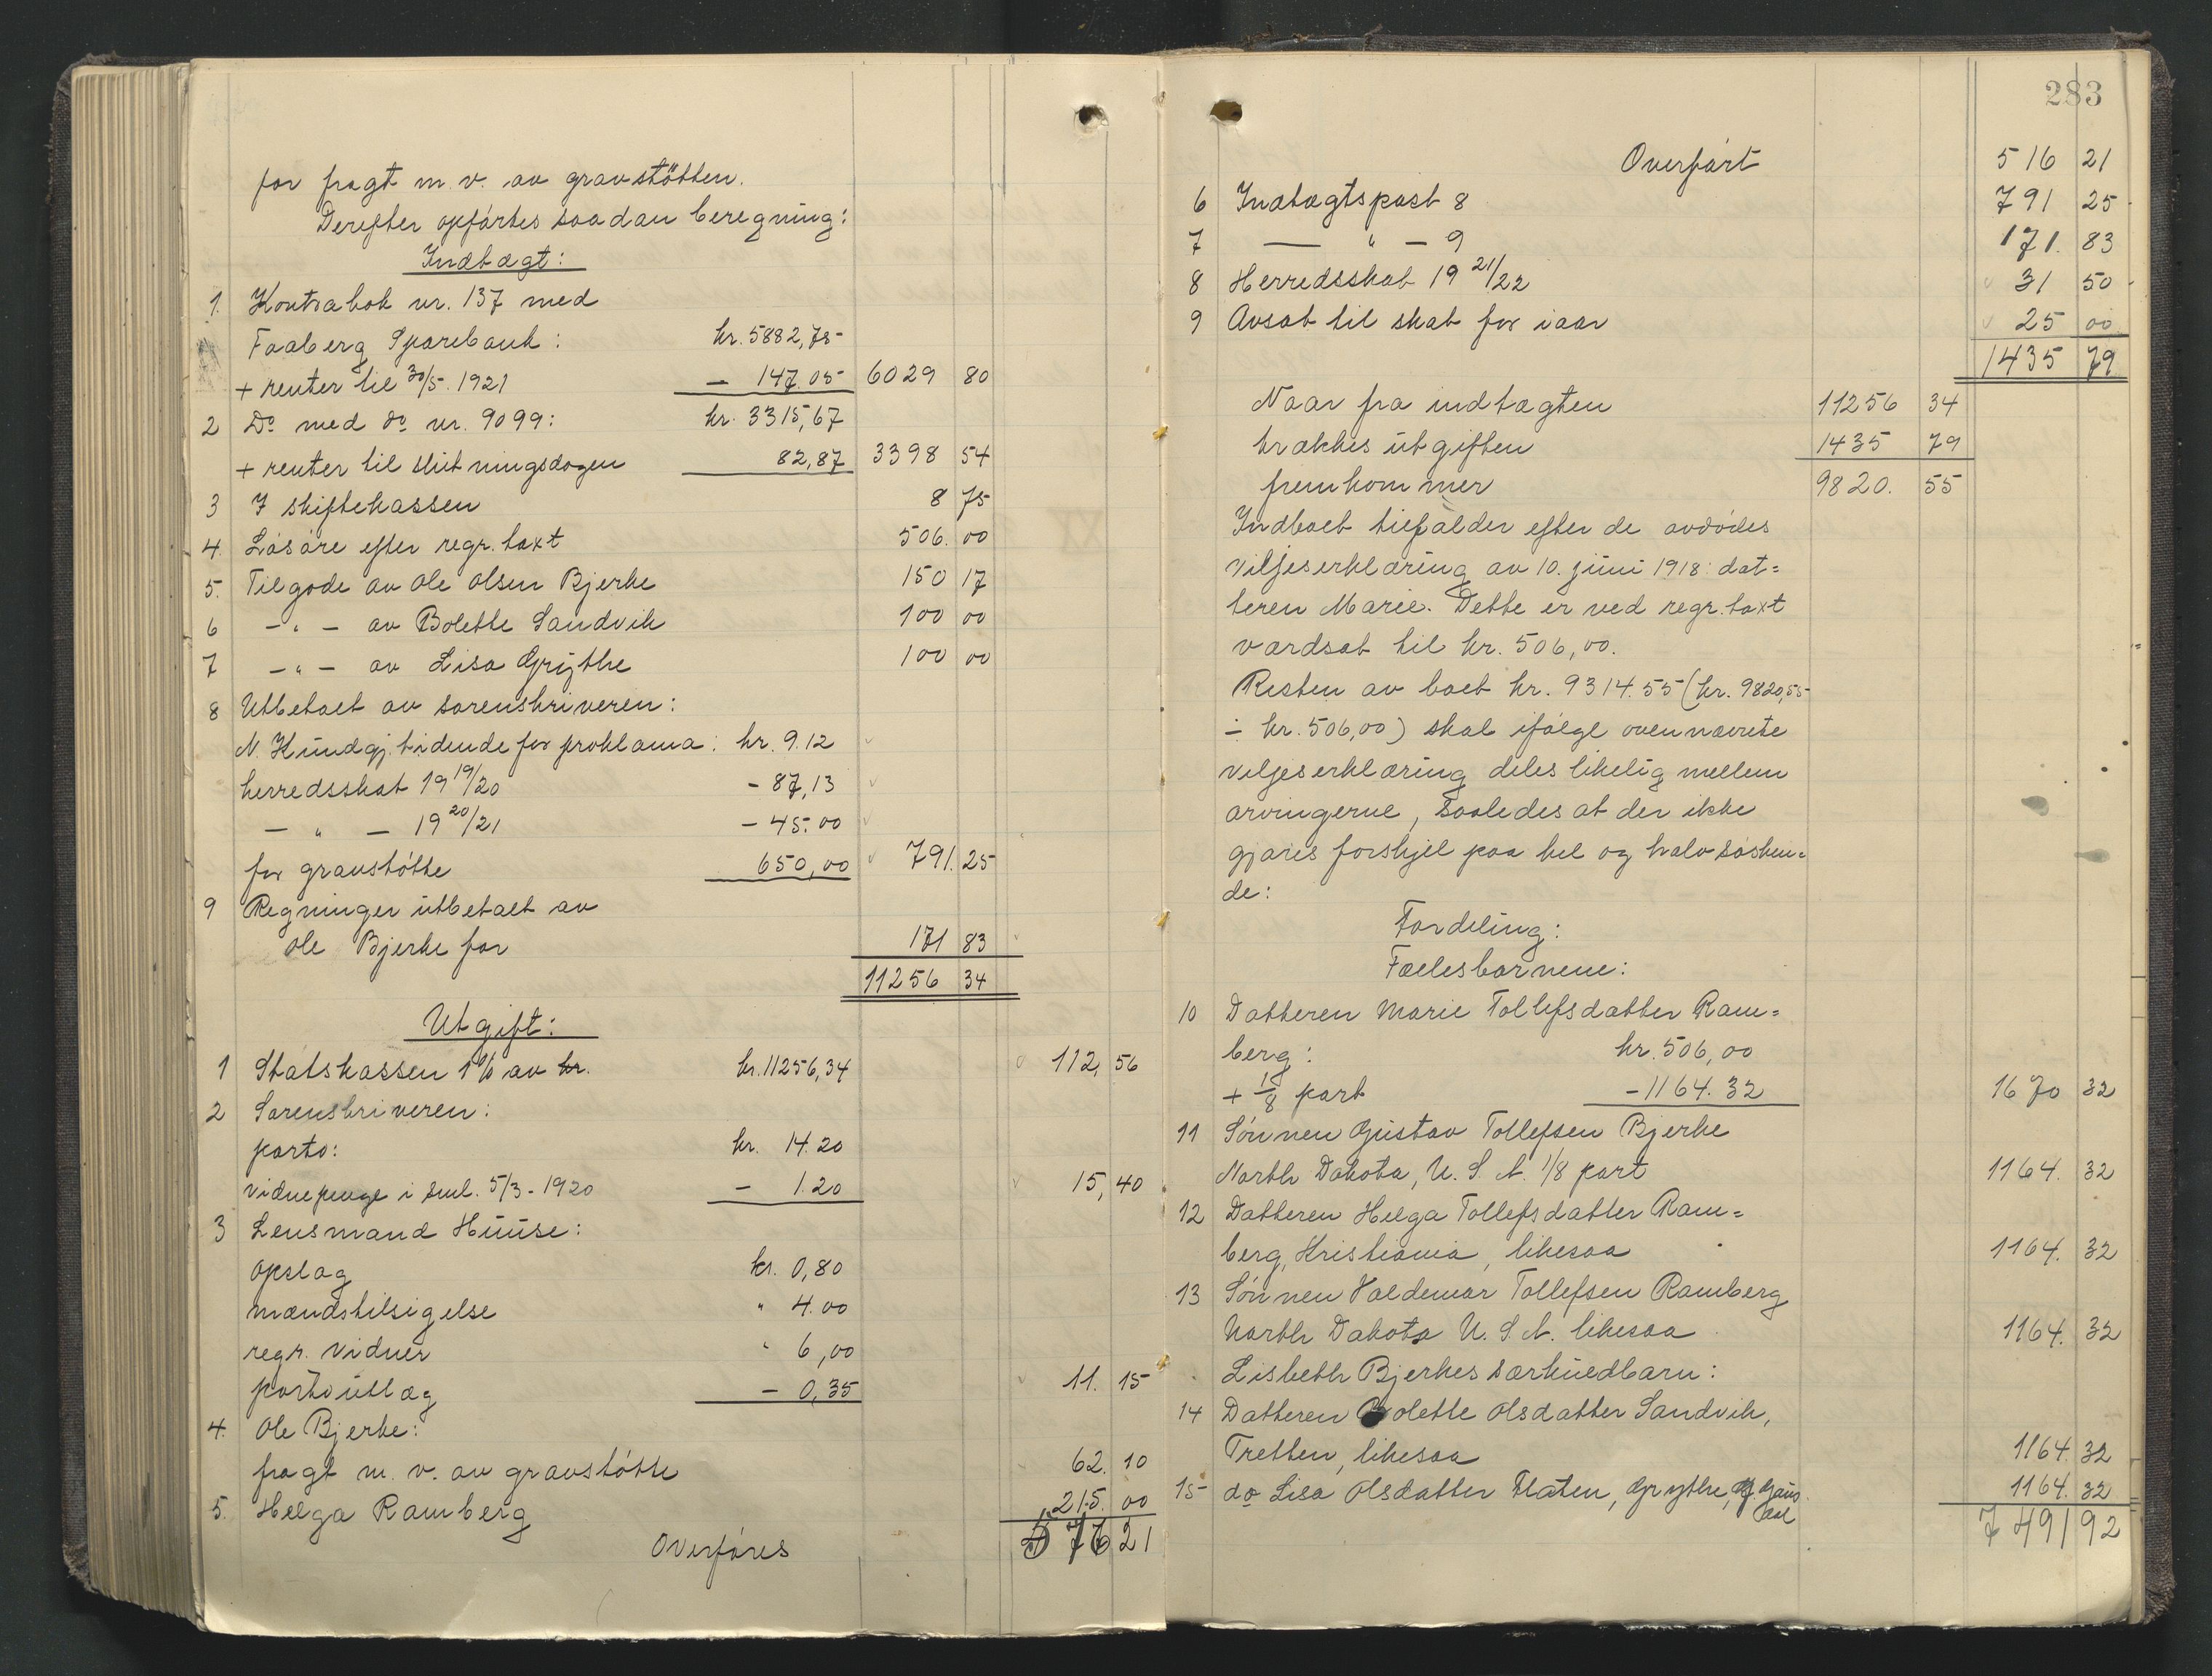 for fragt m. v. av gravstøtten.
Derefter opførtes saadan beregning:
Indtægt:
1. Kontrabok nr. 137 med
Faaberg Sparebank: kr. 5882,75
+ renter til 30/5. 1921 — 147.05 6029 80
2 Do med do nr. 9099: kr. 3315,67
+ renter til slutningsdagen 82,87 3398 54
3 I skiftekassen 8 75
4. Løsøre efter regr. taxt 506. 00
5. Tilgode av Ole Olsen Bjerke 150 17
6 - " - av Bolette Sandvik 100 00
7 - " - av Lisa Grythe 100 00
8 Utbetalt av sorenskriveren:
N. Kundgj. tidende for proklama: kr. 9.12
herredsskat 19 19/20 - 87,13
— " — 19 20/21 - 45.00
for gravstøtte 650,00 791. 25
9 Regninger utbetalt av
Ole Bjerke for 171 83
11256 34
Utgift:
1 Statskassen 1 % av kr. kr. 11256,34 112, 56
2 Sorenskriveren:
porto: kr. 14.20
vidnepenge i sml. 5/3 - 1920 — 1.20 15, 40
3 Lensmand Huuse:
opslag kr. 0,80
mændstilsigelse " 4.00
regr. vidner " 6,00
portoutlæg — 0,35 11. 15
4. Ole Bjerke:
fragt m. v. av gravstøtte 62. 10
5. Helga Ramberg 215. 00
Overføres 576 21
283
Overført 516 21
6 Indtægtspost 8 791 25
7 — " — 9 171. 83
8 Herredsskat 19 21/22 31 50
9 Avsat til skat for iaar 25 00
1435 79
Naar fra indtægten 11256 34
trækkes utgiften 1435 79
fremkommer 9820. 55
Indboet tilfalder efter de avdødes
viljeserklæring av 10. juni 1918 dat=
teren Marie. Dette er ved regr. taxt
værdsat til kr. 506,00.
Resten av boet kr. 9314.55 (kr. 9820,55
÷ kr. 506,00) skal ifølge ovennævnte
viljeserklæring deles likelig mellem
arvingerne, saaledes at der ikke
gjøres forskjel paa hel og halv søsken=
de:
Fordeling:
Fællesbarnene:
10 Datteren Marie Tollefsdatter Ram=
berg: kr. 506,00
+ 1/8 part - 1164.32 1670 32
11 Sønnen Gustav Tollefsen Bjerke
North Dakota, U. S. A. 1/8 part 1164. 32
12 Datteren Helga Tollefsdatter Ram=
berg, Kristiania, likesaa 1164. 32
13 Sønnen Valdemar Tollefsen Ramberg
North Dakota U. S. A. likesaa 1164. 32
Lisbeth Bjerkes særkuldbarn:
14 Datteren Bolette Olsdatter Sandvik,
Tretten, likesaa 1164. 32
15 do Lisa Olsdatter Flaten, Grythe, Ø Gaus
dal 1164. 32
7491 92